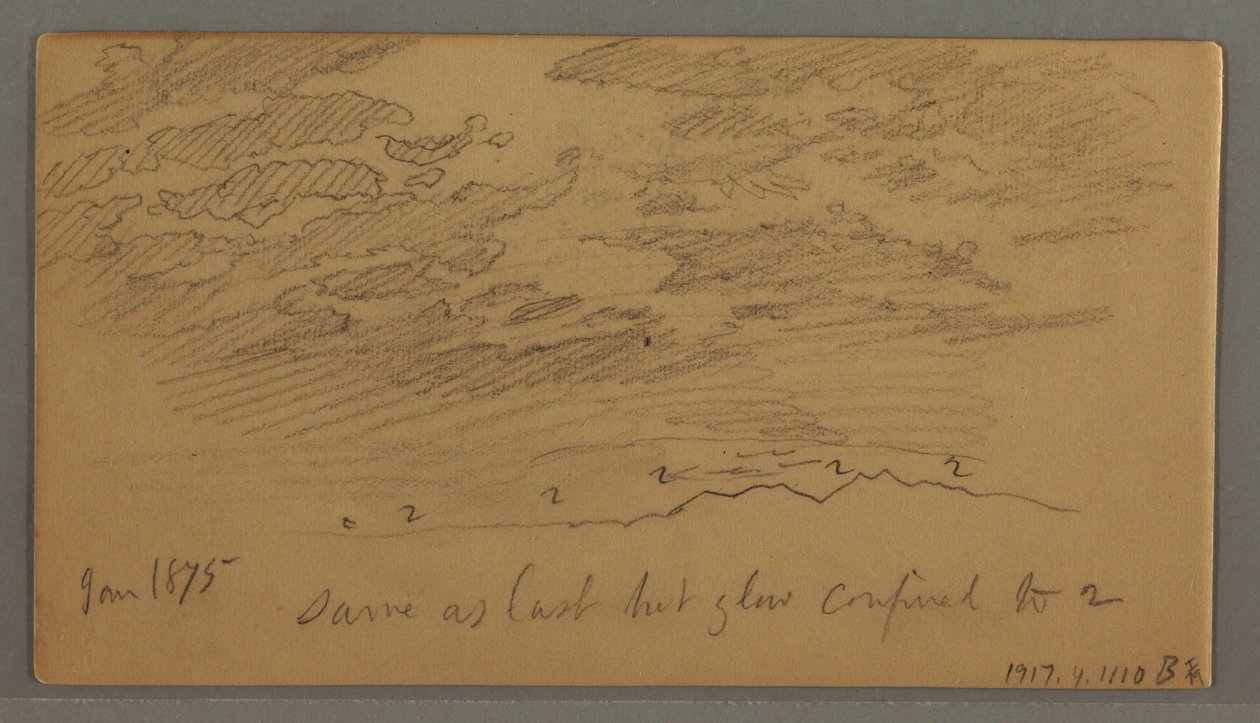 2 2 2 2 2
Jan 1875
same as last but glow confined to 2
1917.4.1110 B